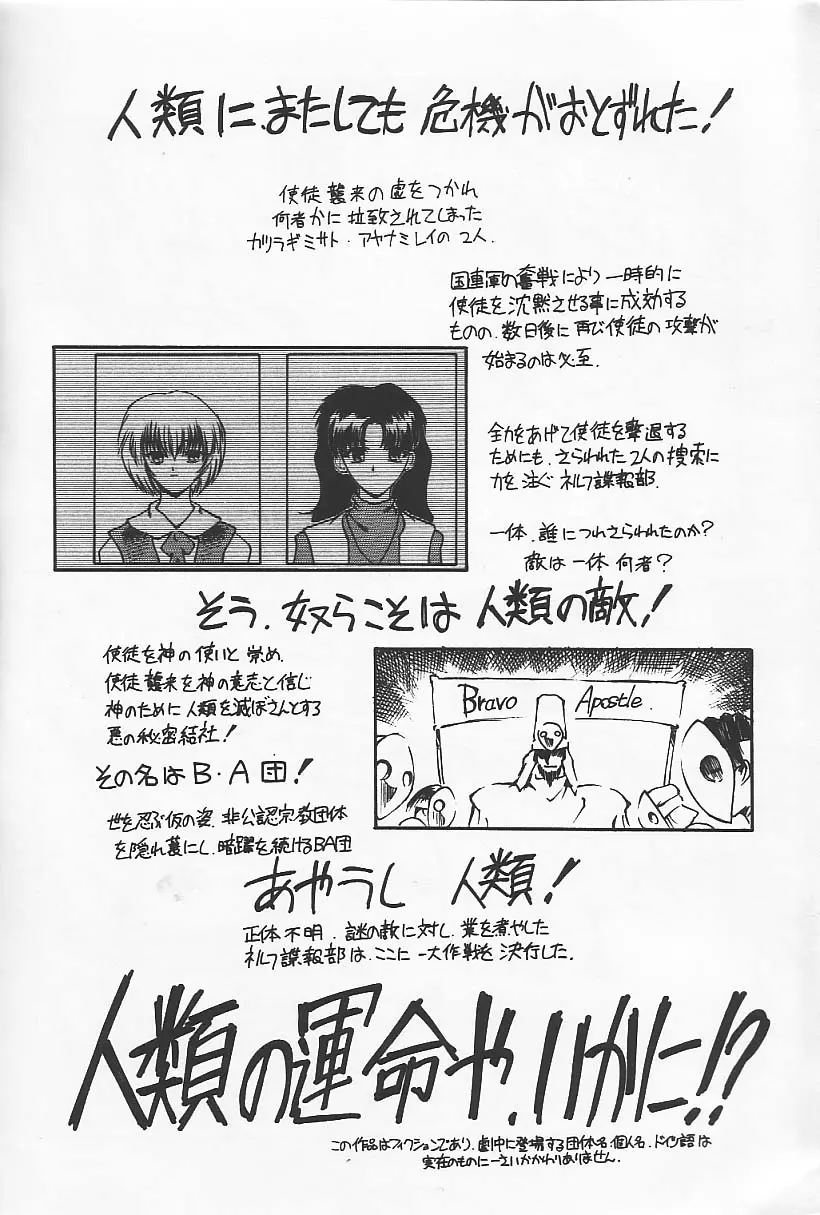 人類に、またしても危機がおとずれた!
使徒襲来の虚をつかれ
何者かに拉致されてしまった
カツラギミサト・アヤナミレイの2人.
国連軍の奮戦により一時的に
使徒を沈黙させる事に成効する
ものの、数日後に再び使徒の攻撃が
始まるのは必至.
全力をあげて使徒を撃退する
ためにも、さらわれた2人の捜索に
力を注ぐネルフ諜報部.
一体、誰につれさらわれたのか?
敵は一体何者?
そう、奴らこそは人類の敵!
使徒を神の使いと崇め、
使徒襲来を神の意志と信じ
神のために人類を滅ぼさんとする
悪の秘密結社!
その名はB・A団!
Bravo Apostle.
世を忍ぶ仮の姿、非公認宗教団体
を隠れ蓑にし、暗躍を続けるBA団
あやうし 人類!
正体不明、謎の敵に対し、業を煮やした
ネルフ諜報部は、ここに一大作戦を決行した.
人類の運命や、いかに!?
この作品はフィクションであり、劇中に登場する団体名、個人名、ドイツ語は
実在のものに一さいかかわりありません.